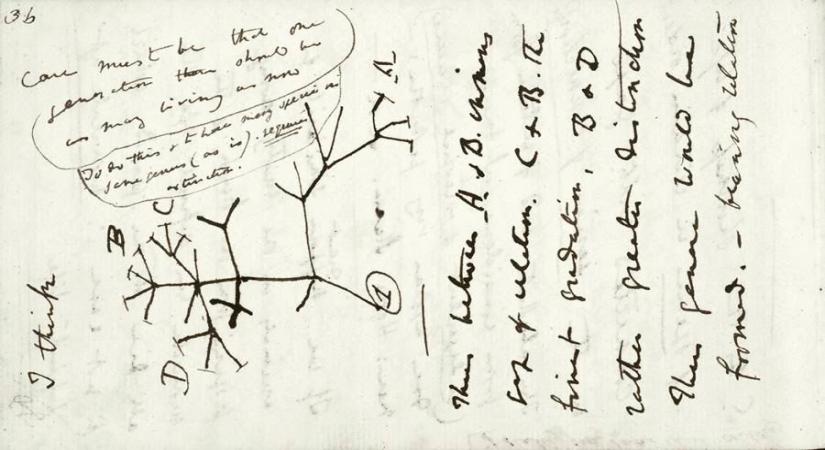 36
I think
Case must be that one
generation then should be
as many living as now
To do this & to have many species in
same genus (as is). requires
extinction.
A
B
C
D
1
Thus between A & B. immens
gap of relation. C & B. the
finest gradation, B & D
rather greater distinction
Thus genera would be
formed. — bearing relation